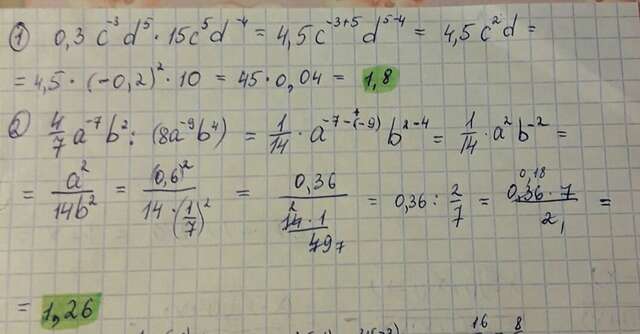 ① 0,3 c⁻³ d⁵ · 15c⁵ d⁻⁴ = 4,5c⁻³⁺⁵ d⁵⁻⁴ = 4,5 c² d =
= 4,5 · (-0,2)² · 10 = 45 · 0,04 = 1,8
② 4/7 a⁻⁷ b² : (8a⁻⁹ b⁴) = 1/14 · a⁻⁷⁻⁽⁻⁹⁾ b²⁻⁴ = 1/14 · a² b⁻² =
= a²/14b² = (0,6)²/14 · (1/7)² = 0,36/(14 · 1/49) = 0,36 : 2/7 = 0,36 · 7/2 =
= 1,26